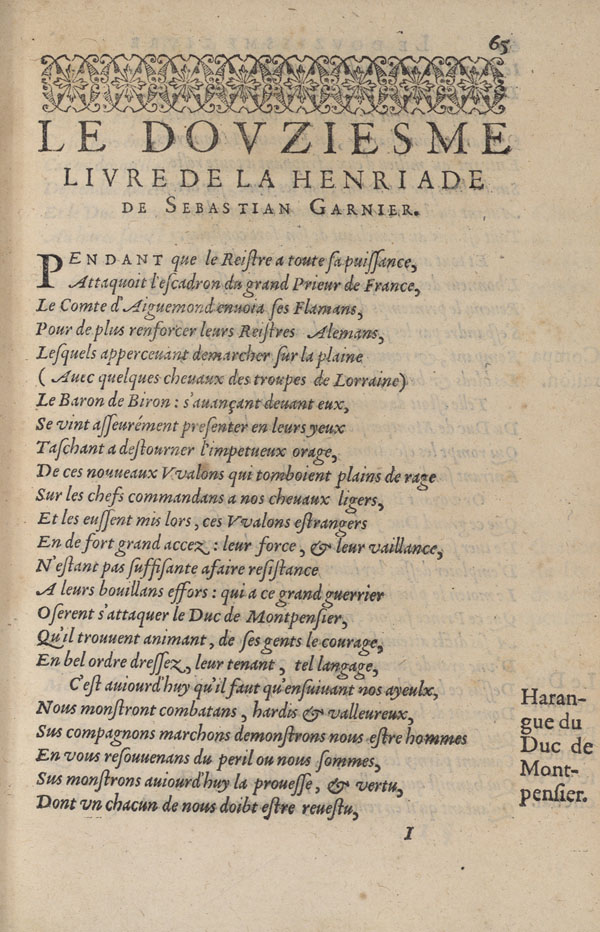 65
LE DOVZIESME
LIVRE DE LA HENRIADE
DE SEBASTIAN GARNIER.
PENDANT que le Reiſtre a toute ſa puiſſance,
Attaquoit l'eſcadron du grand Prieur de France,
Le Comte d'Aiguemond enuoia ſes Flamans,
Pour de plus renforcer leurs Reiſtres Alemans,
Leſquels apperceuant demarcher ſur la plaine
( Auec quelques cheuaux des troupes de Lorraine)
Le Baron de Biron : s'auançant deuant eux,
Se vint aſſeurément preſenter en leurs yeux
Taſchant a deſtourner l'impetueux orage,
De ces nouueaux Vvalons qui tomboient plains de rage
Sur les chefs commandans a nos cheuaux ligers,
Et les euſſent mis lors, ces Vvalons eſtrangers
En de fort grand accez : leur force, & leur vaillance,
N'eſtant pas ſuffiſante afaire reſiſtance
A leurs bouillans effors : qui a ce grand guerrier
Oſerent s'attaquer le Duc de Montpenſier,
Qu'il trouuent animant, de ſes gents le courage,
En bel ordre dreſſez, leur tenant, tel langage,
C'eſt auiourd'huy qu'il faut qu'enſuiuant nos ayeulx,
Nous monſtront combatans, hardis & valleureux,
Sus compagnons marchons demonſtrons nous eſtre hommes
En vous reſouuenans du peril ou nous ſommes,
Sus monſtrons auiourd'huy la proueſſe, & vertu,
Dont vn chacun de nous doibt eſtre reueſtu,
Haran-
gue du
Duc de
Mont-
penſier.
I